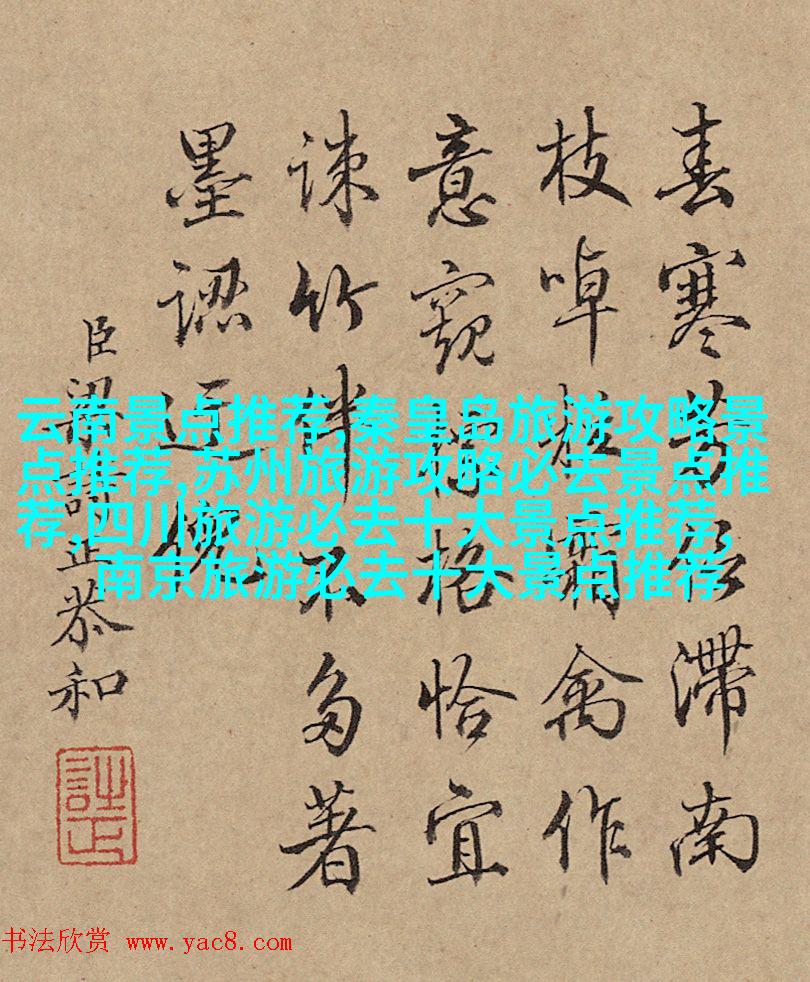 春寒芳滯南
枝啅霜禽作
意窺格恰宜
竹伴不多著
墨
臣梁詩正恭和
云南景点推荐,秦皇岛旅游攻略景
点推荐,苏州旅游攻略必去景点推
荐,四川旅游必去十大景点推荐,
南京旅游必去十大景点推荐
书法欣赏 www.yac8.com